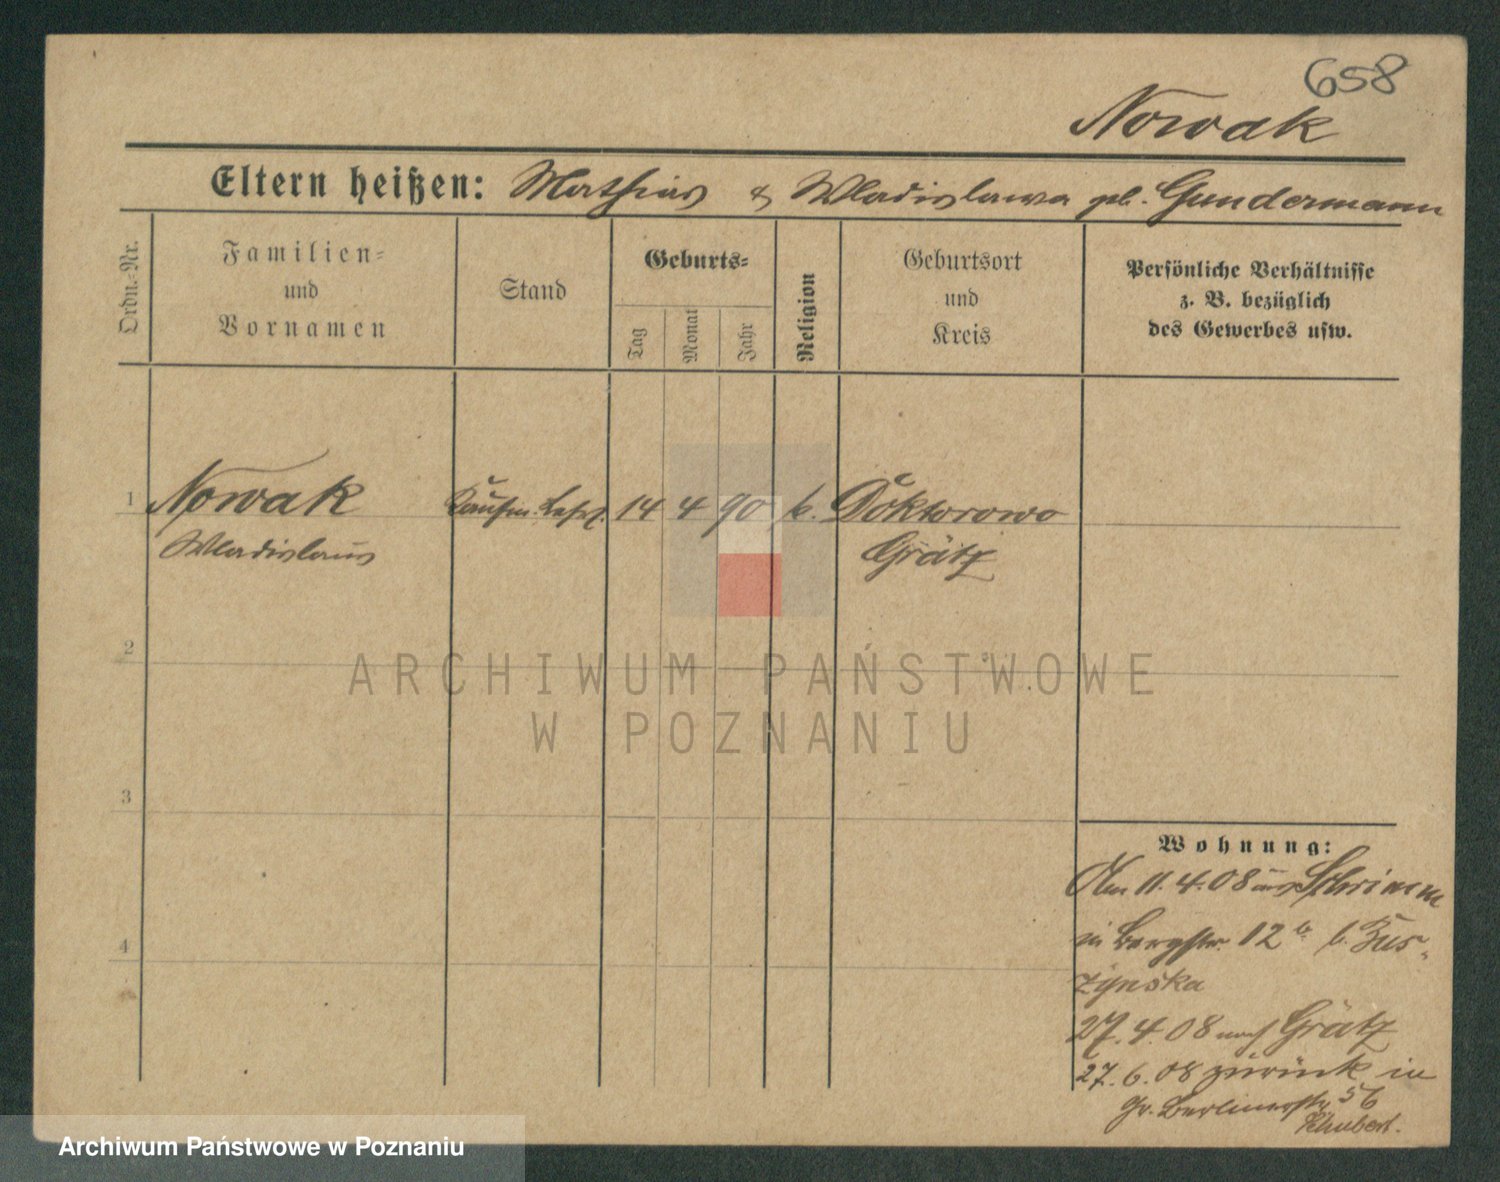 658
Nowak
Eltern heißen: Mathias & Wladislawa geb. Gundermann
Ordn.-Nr.
Familien-
und
Vornamen
Stand
Geburts-
Tag
Monat
Jahr
Religion
Geburtsort
und
Kreis
Persönliche Verhältnisse
z. B. bezüglich
des Gewerbes usw.
1 Nowak Kaufm. Lehrl. 14 4 90 k. Doktorowo
Wladislaus Grätz
2
ARCHIWUM PAŃSTWOWE
W POZNANIU
3
4
Wohnung:
Am 11.4.08 aus Schrimm
in Bergstr. 12b b. Zus-
zynska
27.4.08 nach Grätz
27.6.08 zurück in
Gr. Berlinerstr 56
Schubert.
Archiwum Państwowe w Poznaniu